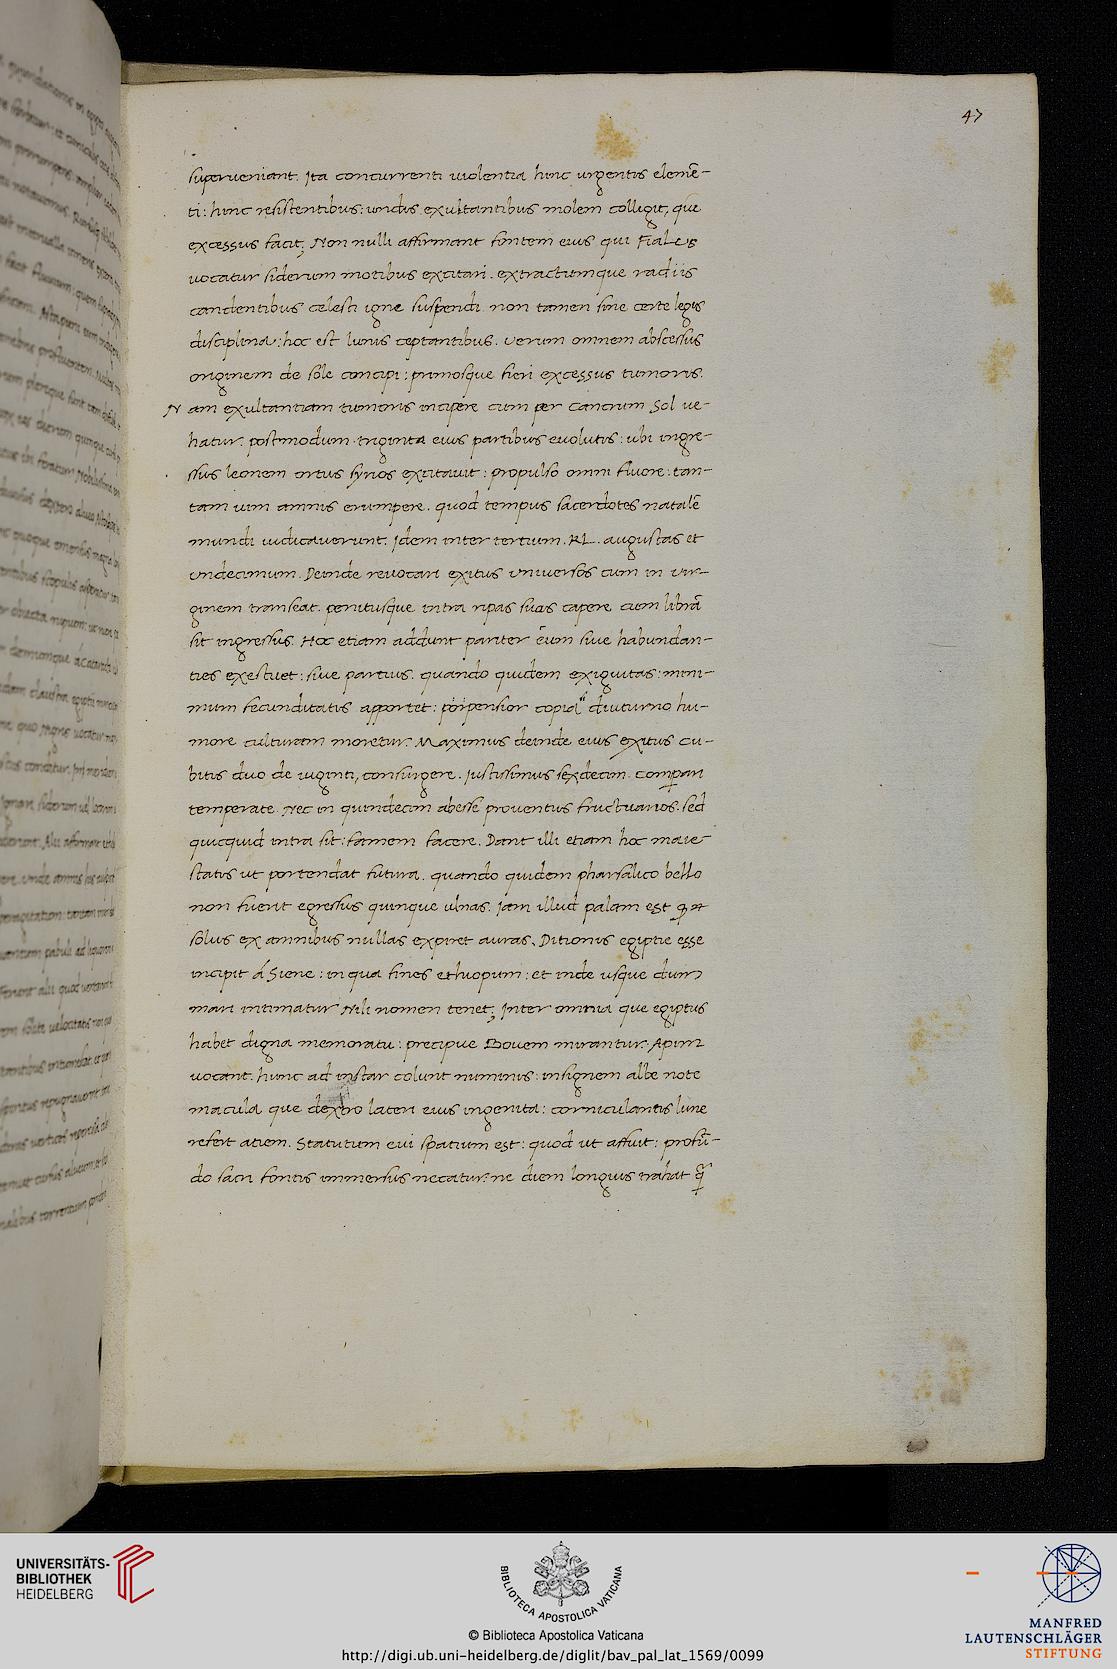 47
superveniant. Ita concurrenti violentia hinc urgentis elemē-
ti: hinc resistentibus: undis exultantibus molem colligit, que
excessus facit; Non nulli affirmant fontem eius qui Fialus
vocatur siderum motibus excitari. extractumque radiis
candentibus celesti igne suspendi non tamen sine certe legis
disciplina: hoc est lunis ceptantibus. verum omnem abscessus
originem de sole concipi: primosque fieri excessus tumoris.
Nam exultantiam tumoris incipere cum per Cancrum Sol ve-
hatur. postmodum triginta eius partibus evolutis: ubi ingre-
ssus leonem ortus syrios excitavit: propulso omni fluore: tan-
tam vim amnis erumpere. quod tempus sacerdotes natalē
mundi iudicaverunt. Idem inter tertium. KL. augustas et
undecimum. Deinde revocari exitus universos cum in vir-
ginem transeat. penitusque intra ripas suas capere cum librā
sit ingressus. Hoc etiam addunt pariter eum sive habundan-
ties exestuet: sive partius. quando quidem exiguitas: mini-
mum fecunditatis apportet: propensior copia diuturno hu-
more culturam moretur. Maximus deinde eius exitus cu-
bitis duo de viginti, consurgere. Iustissimus sexdecim. Compari
temperate. Nec in quindecim abesse proventus fructuarios. sed
quicquid intra sit: famem facere. Dant illi etiam hoc maie-
statis ut portendat futura. quando quidem pharsalico bello
non fuerit egressus quinque ulnas. Iam illud palam est
solus ex amnibus nullas expiret auras. Ditionis egiptie esse
incipit á Siene: in qua fines ethiopum: et inde usque dum
mari intimatur Nili nomen tenet; Inter omnia que egiptus
habet digna memoratu: precipue Bovem mirantur. Apim
vocant. hunc ad instar colunt numinis: insignem albe note
macula que dextro lateri eius ingenita: corniculantis lune
refert atiem. Statutum evi spatium est: quod ut affuit: profū-
do sacri fontis immersus necatur: ne diem longius trahat q̄
UNIVERSITÄTS-
BIBLIOTHEK
HEIDELBERG
BIBLIOTECA APOSTOLICA VATICANA
© Biblioteca Apostolica Vaticana
http://digi.ub.uni-heidelberg.de/diglit/bav_pal_lat_1569/0099
MANFRED
LAUTENSCHLÄGER
STIFTUNG